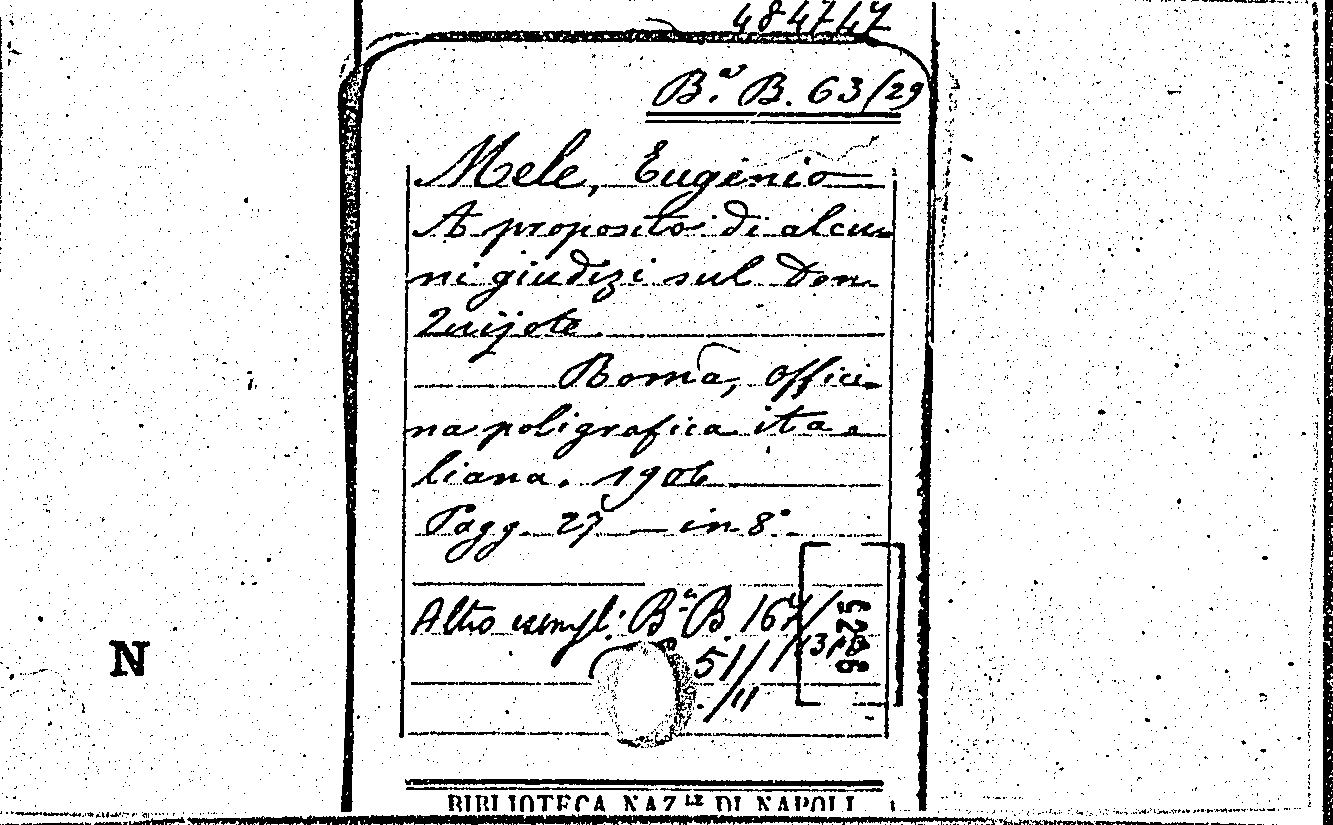 484747
Bª. B. 63/29
Mele, Eugenio
A proposito di alcu-
ni giudizi sul Don
Quijote.
Roma, offici-
na poligrafica ita-
liana. 1906
Pagg. 27 — in 8°.
Altro esempl: Bª B. 167/
51/
/11
N
BIBLIOTECA NAZ.LE DI NAPOLI